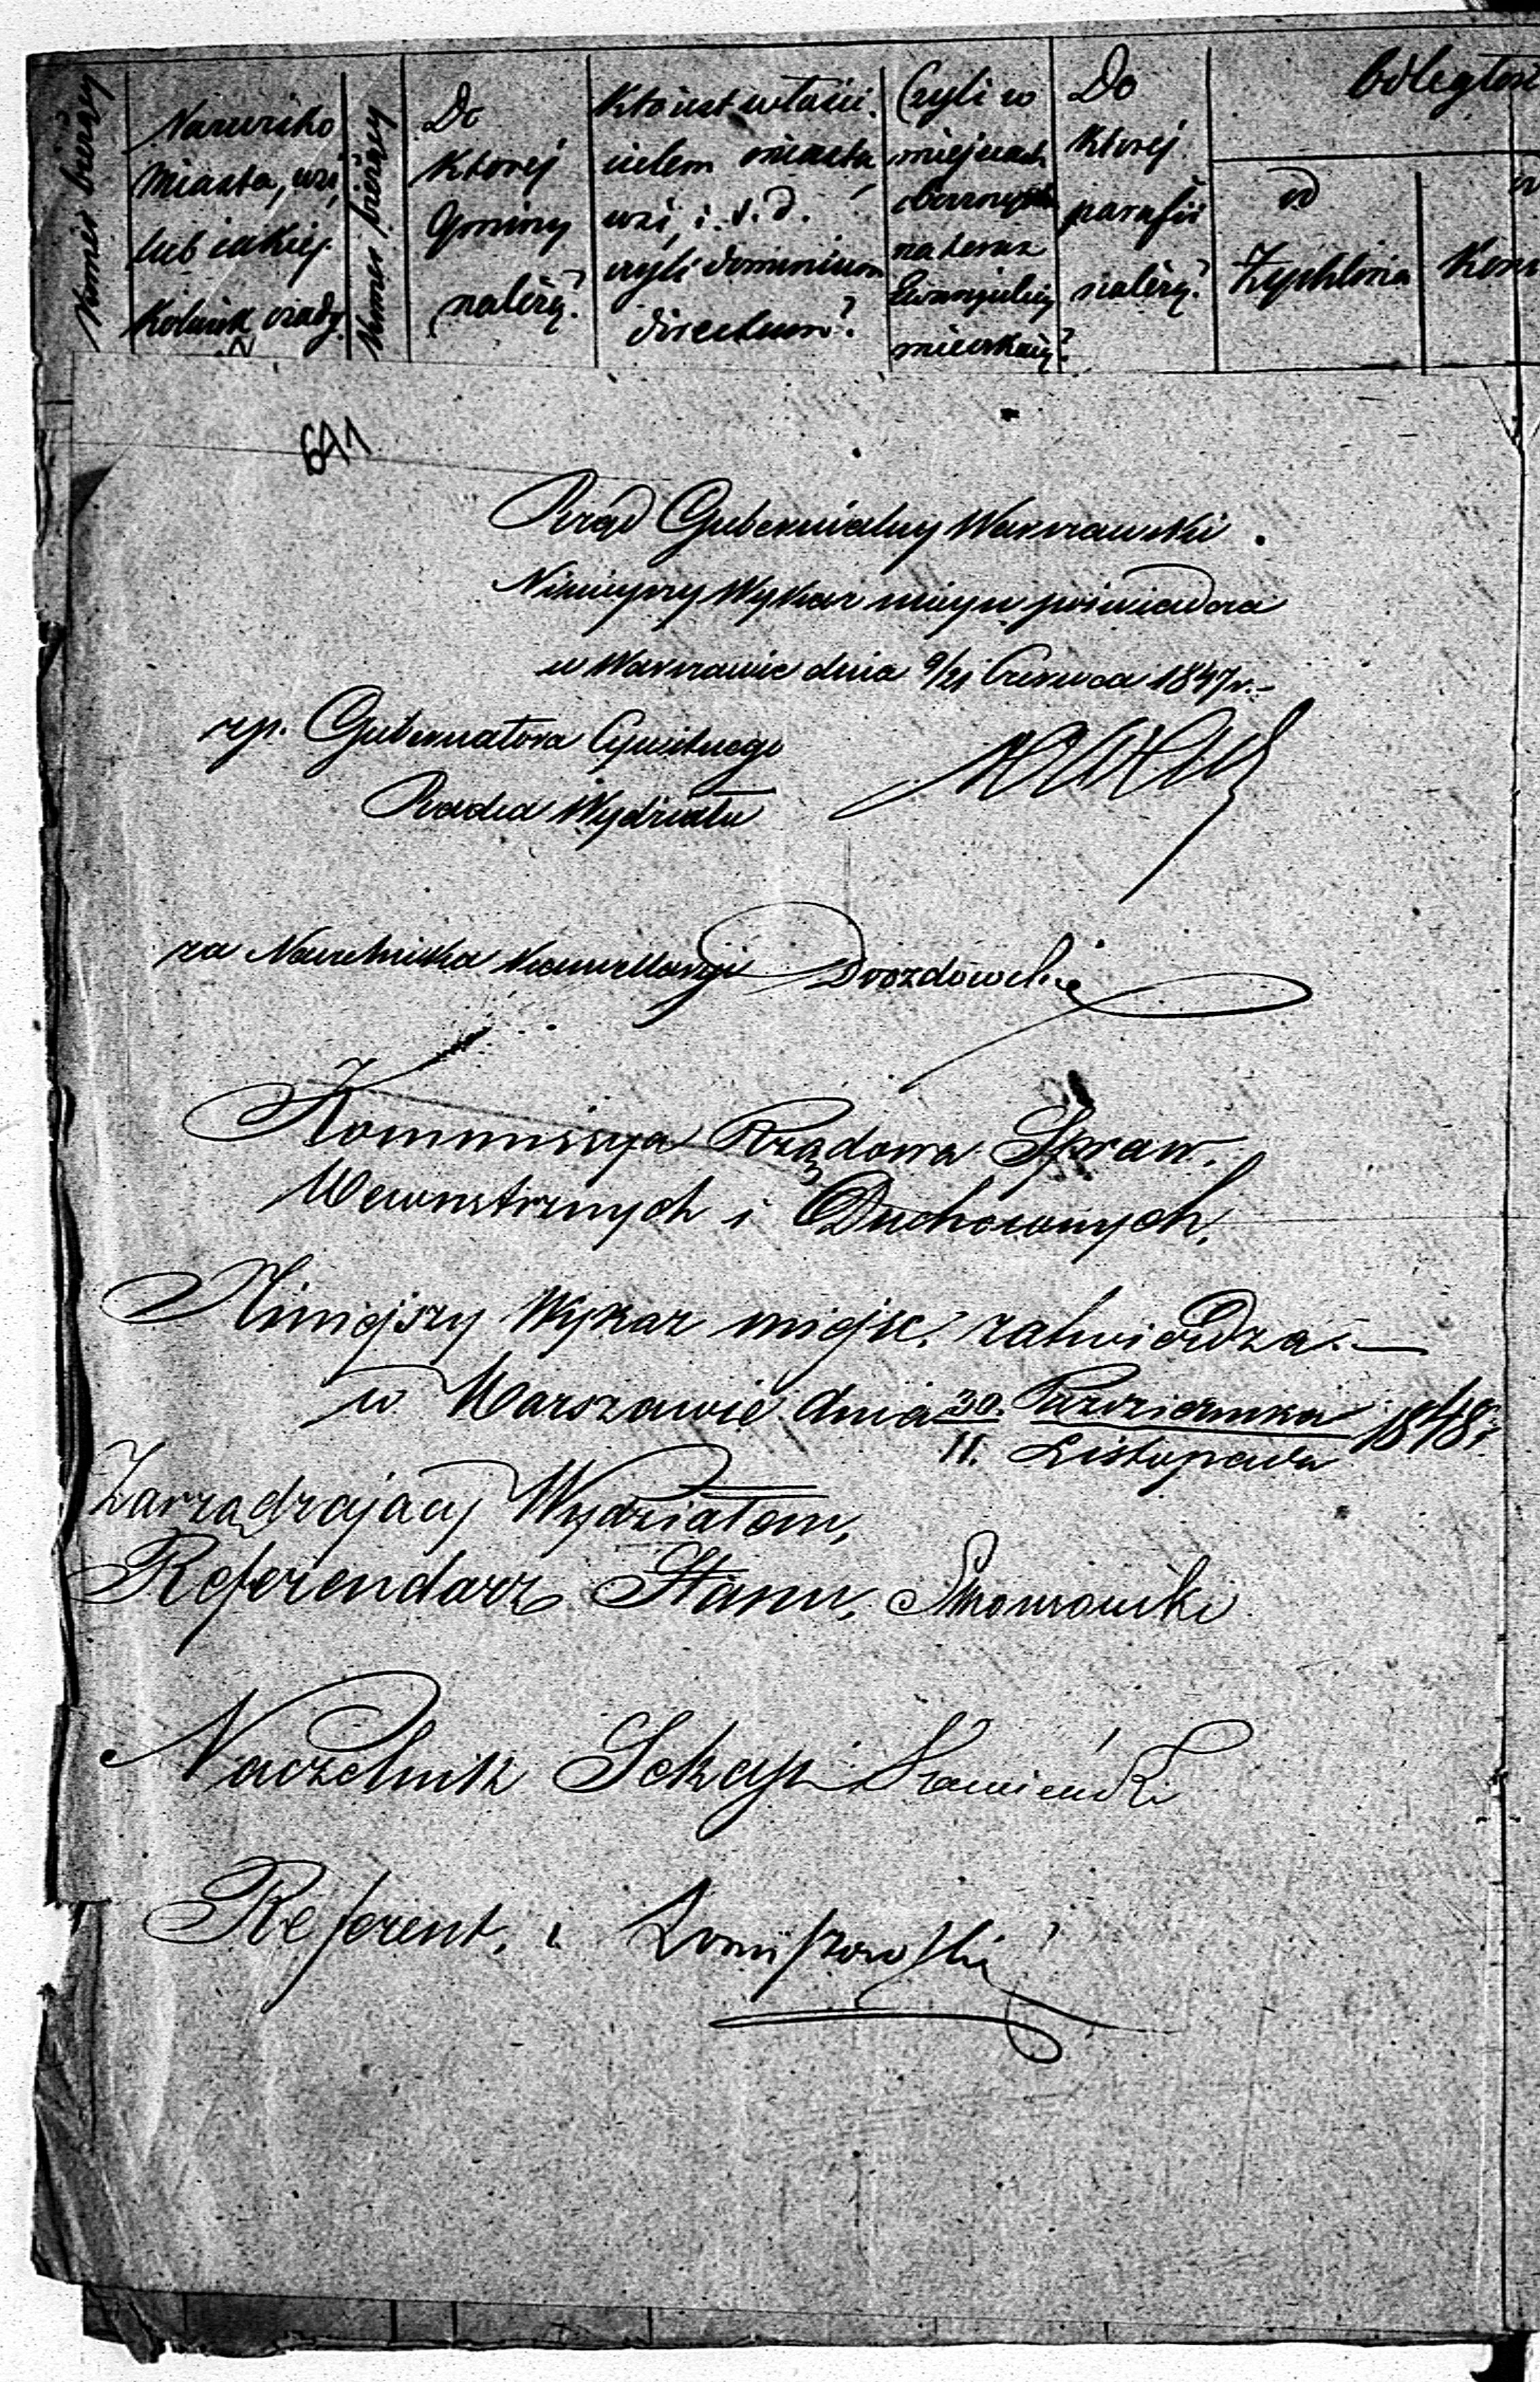 Numer bieżący
Nazwisko
Miasta, wsi,
lub iakiej
Kolwiek osady
Numer bieżący
Do
Ktorej
Gminy
należy?
Kto iest właści-
cielem miasta,
wsi, i. t. d.
czyli dominium
directum?
Czyli w
miejscach
na teraz
Ewangelicy
mieszkaią?
Do
Ktorej
parafii
należy?
Odległość
od
Żychlina
691
Rząd Gubernialny Warszawski.
Ninieyszy Wykaz mieysc poświadcza
w Warszawie dnia 9/21 Czerwca 1847 r. -
zp. Gubernatora Cywilnego
Radca Wydziału
za Naczelnika Kancellaryi Drozdowski
Kommissya Rządowa Spraw.
Wewnętrznych i Duchownych,
Niniejszy Wykaz miejsc zatwierdza. —
w Warszawie dnia 30. Października 1848 r.
11. Listopada
Zarządzający Wydziałem,
Referendarz Stanu,
Naczelnik Sekcyi Kamieński
Referent,